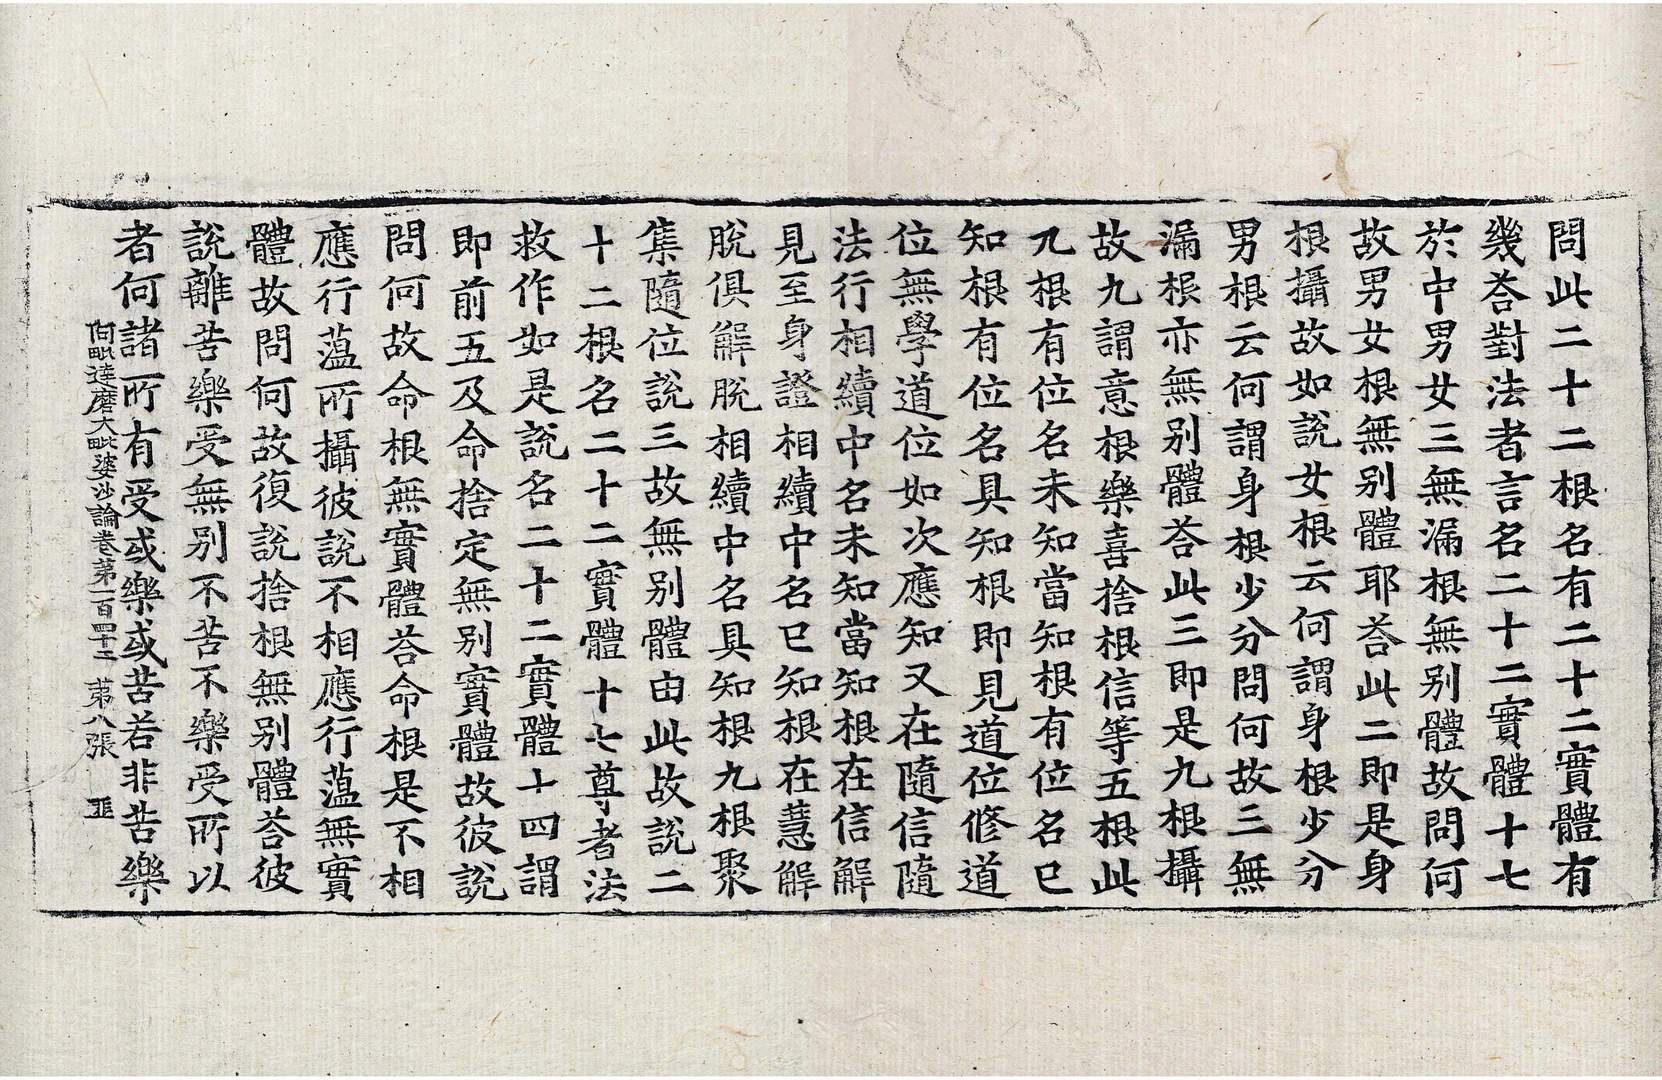 問此二十二根名有二十二實體有
幾荅對法者言名二十二實體十七
於中男女三無漏根無别體故問何
故男女根無别體耶荅此二即是身
根攝故如說女根云何謂身根少分
男根云何謂身根少分問何故三無
漏根亦無别體荅此三即是九根攝
故九謂意根樂喜捨根信等五根此
九根有位名未知當知根有位名已
知根有位名具知根即見道位修道
位無學道位如次應知又在隨信隨
法行相續中名未知當知根在信解
見至身證相續中名已知根在慧解
脫俱解脫相續中名具知根九根聚
集隨位說三故無别體由此故說二
十二根名二十二實體十七尊者法
救作如是說名二十二實體十四謂
即前五及命捨定無别實體故彼說
問何故命根無實體荅命根是不相
應行蕰所攝彼說不相應行蕰無實
體故問何故復說捨根無别體荅彼
說離苦樂受無别不苦不樂受所以
者何諸所有受或樂或苦若非苦樂
阿毗達磨大毗婆沙論卷第一百四十二 第八張